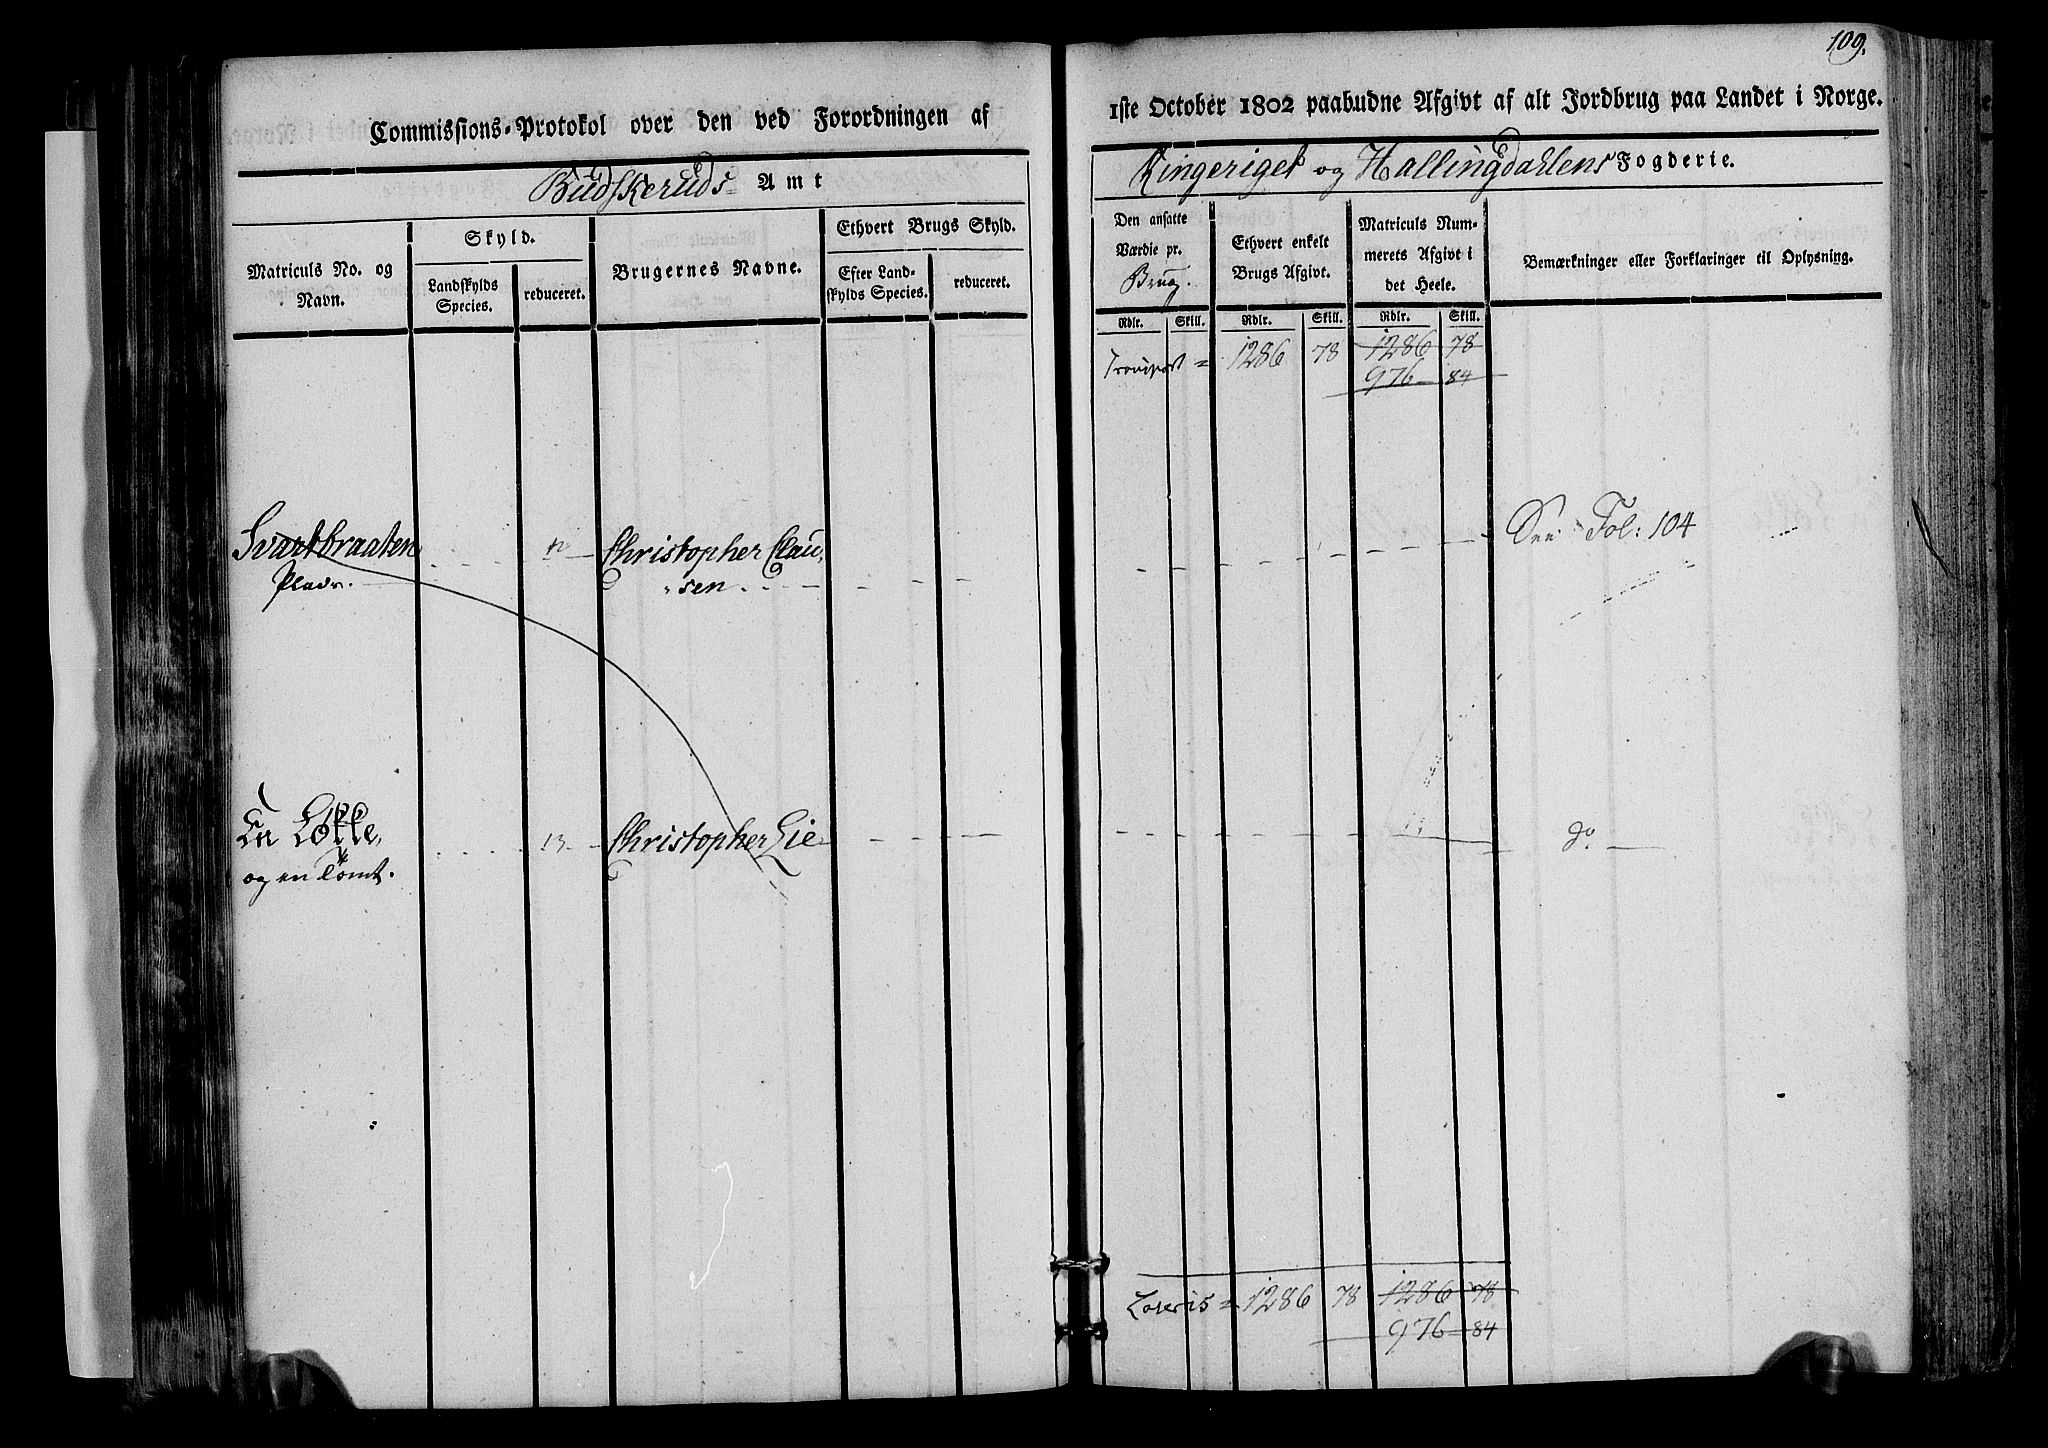 109.
Commissions-Protokol over den ved Forordningen af
1ste October 1802 paabudne Afgivt af alt Jordbrug paa Landet i Norge.
Budskeruds Amt
Ringeriget og Hallingdahlens Fogderie.
Matriculs No. og Navn.
Skyld.
Landskylds Species.
reduceret.
Brugernes Navne.
Ethvert Brugs Skyld.
Efter Landskylds Species.
reduceret.
Den ansatte Værdie pr. Brug.
Ethvert enkelt Brugs Afgivt.
Matriculs Nummerets Afgivt i det Heele.
Bemærkninger eller Forklaringer til Oplysning.
Rdlr. Skill. Rdlr. Skill. Rdlr. Skill.
Transport = 1286 78 1286 78
976 84
Svartbraaten Christopher Clau- See Fol: 104
Plads. sen
En Løkke, 13. Christopher Lie do
og en Tomt.
Lateris = 1286 78 1286 78
976 84